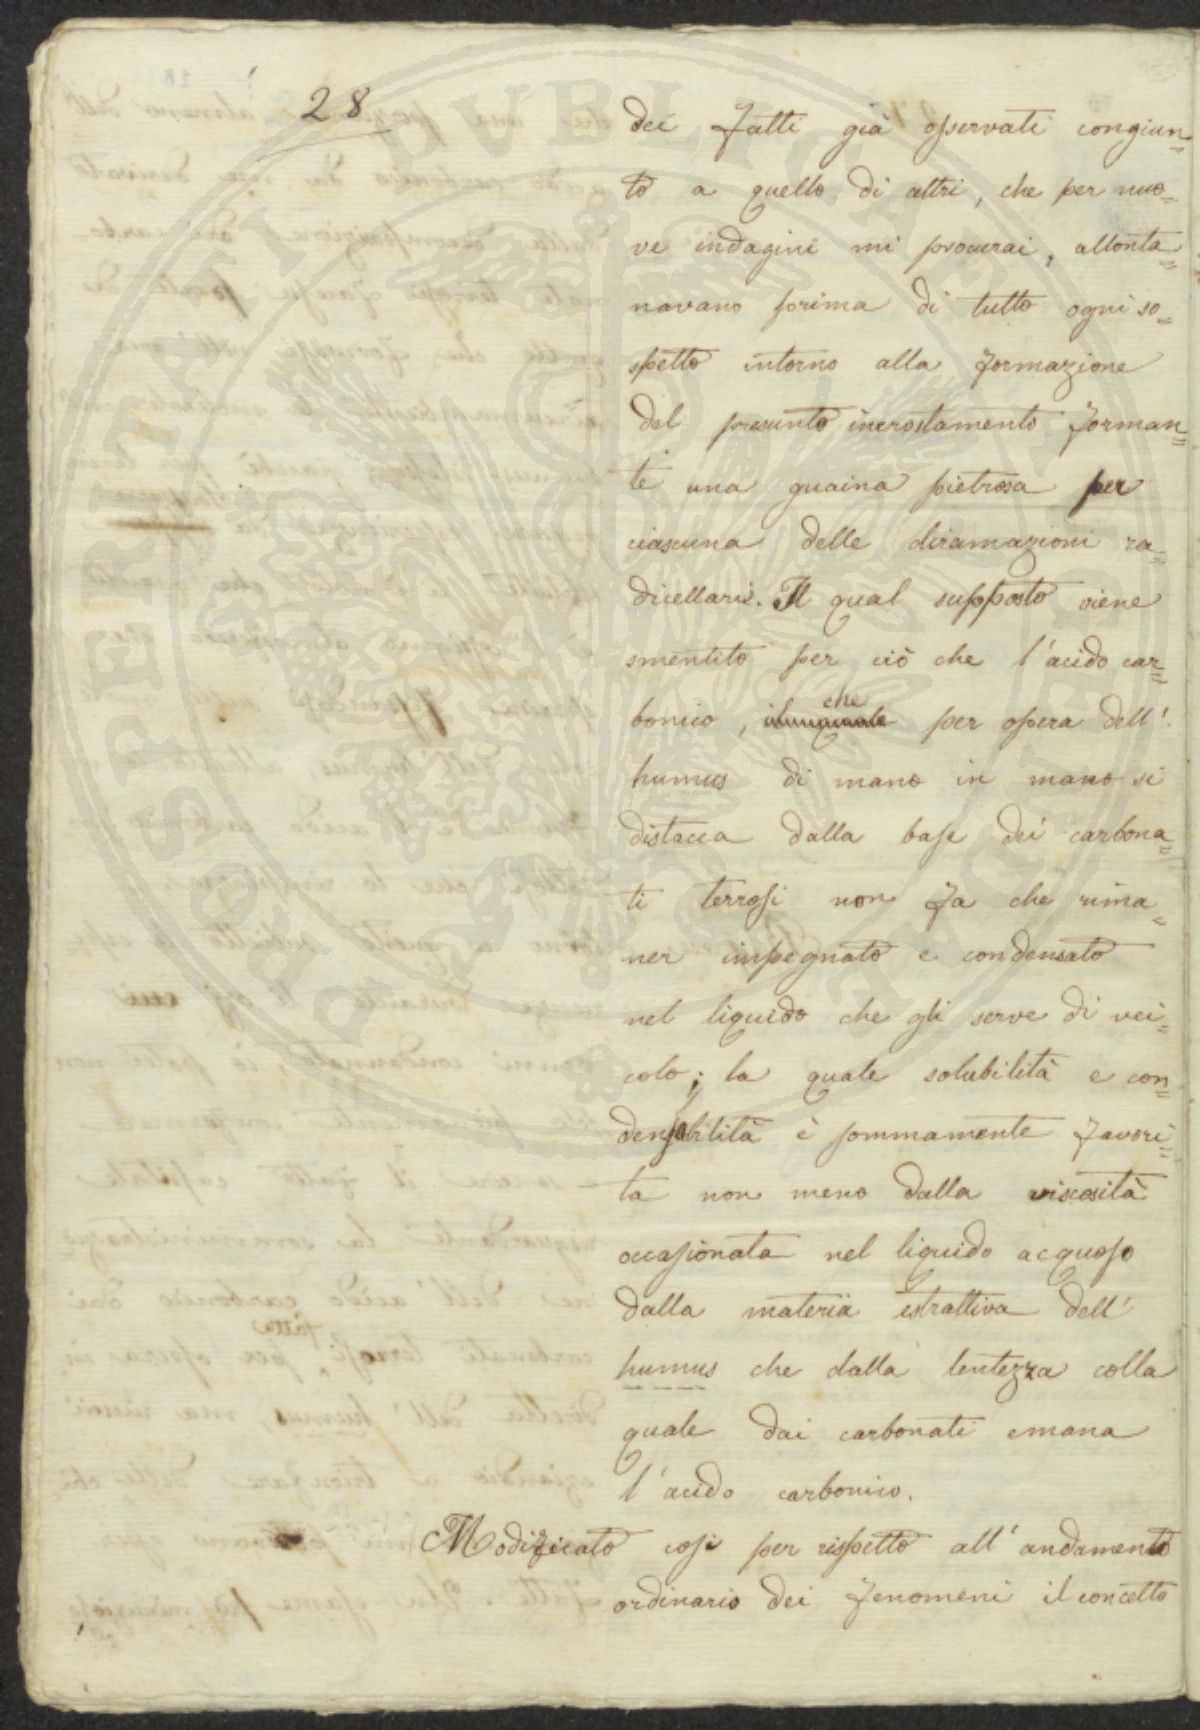 28
dei fatti già osservati congiun=
to a quello di altri, che per nuo=
ve indagini mi procurai, allonta=
navano prima di tutto ogni so=
spetto intorno alla formazione
del presunto incrostamento forman=
te una guaina pietrosa per
ciascuna delle diramazioni ra=
dicellari. Il qual supposto viene
smentito per ciò che l'acido car=
che
bonico, per opera dell'
humus di mano in mano si
distacca dalla base dei carbona=
ti terrosi non fa che rima=
ner impegnato e condensato
nel liquido che gli serve di vei=
colo; la quale solubilità e con=
densabilità è sommamente favori=
ta non meno dalla viscosità
occasionata nel liquido acquoso
dalla materia estrattiva dell'
humus che dalla lentezza colla
quale dai carbonati emana
l'acido carbonico.
Modificato così per rispetto all'andamento
ordinario dei fenomeni il concetto